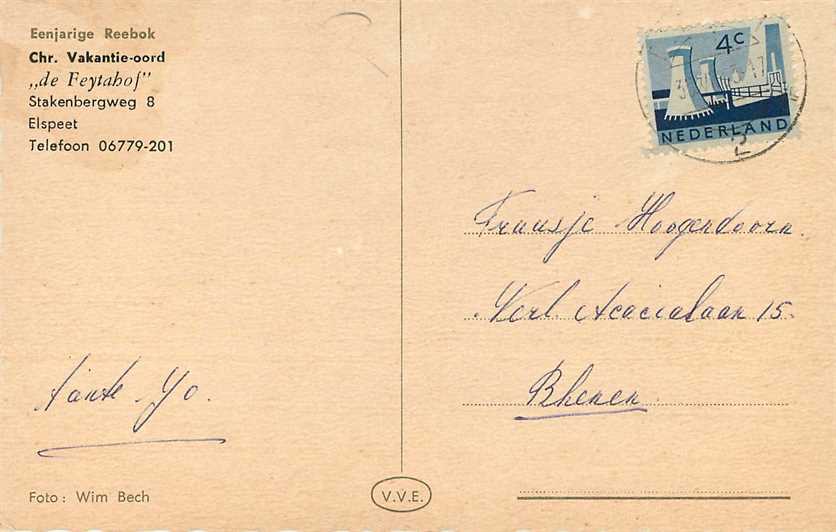 Eenjarige Reebok
Chr. Vakantie-oord
„de Feytahof"
Stakenbergweg 8
Elspeet
Telefoon 06779-201
4c
NEDERLAND
2
Truusje Hoogendoorn.
Verl. Acacialaan 15.
Rhenen
tante Jo.
Foto: Wim Bech
V.V.E.